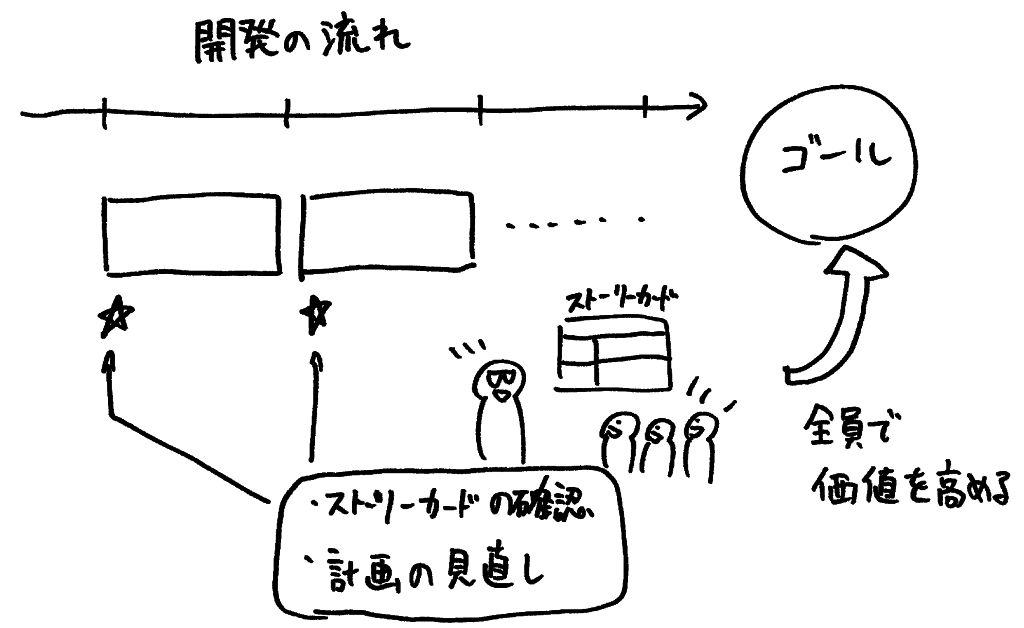 開発の流れ
ゴール
ストーリーカード
全員で
価値を高める
・ストーリーカードの確認
・計画の見直し